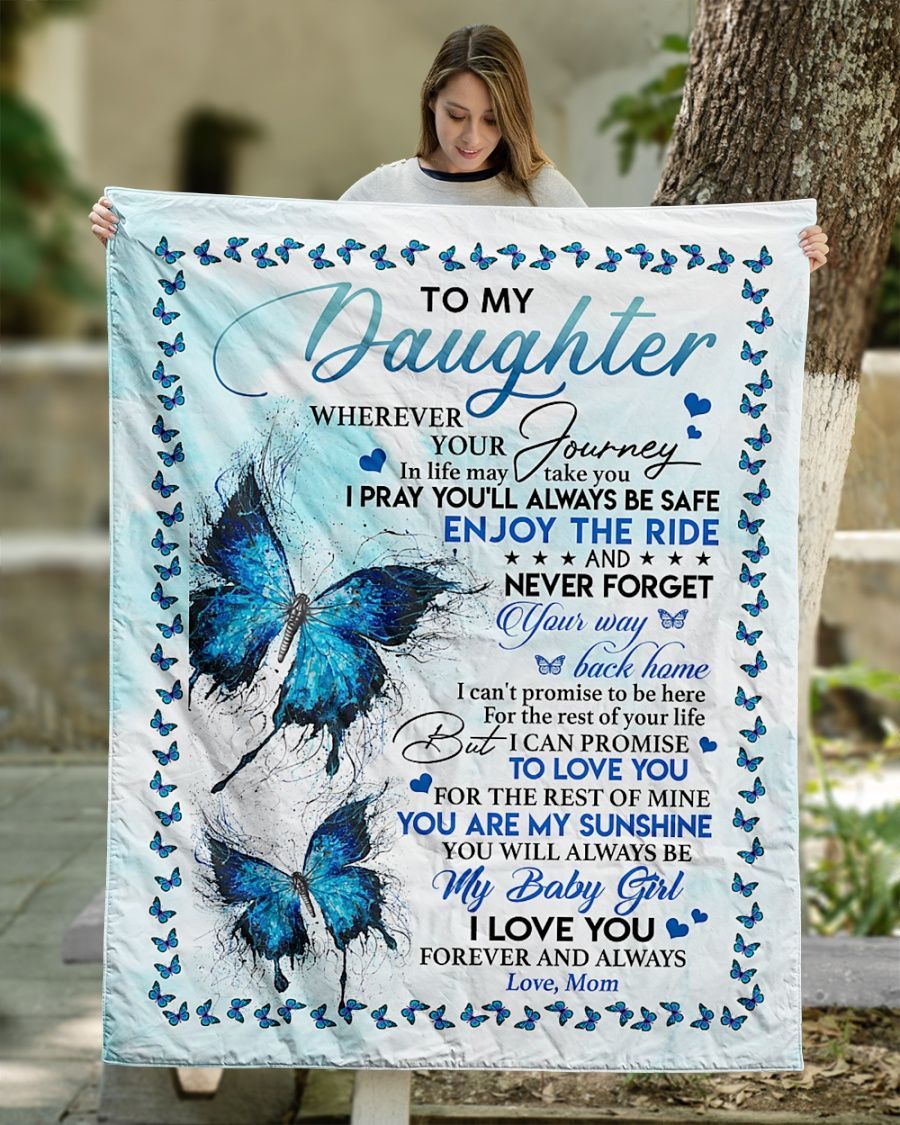 TO MY
Daughter
WHEREVER
YOUR Journey
In life may take you
I PRAY YOU'LL ALWAYS BE SAFE
ENJOY THE RIDE
AND
NEVER FORGET
Your way
back home
I can't promise to be here
For the rest of your life
But I CAN PROMISE
TO LOVE YOU
FOR THE REST OF MINE
YOU ARE MY SUNSHINE
YOU WILL ALWAYS BE
My Baby Girl
I LOVE YOU
FOREVER AND ALWAYS
Love, Mom